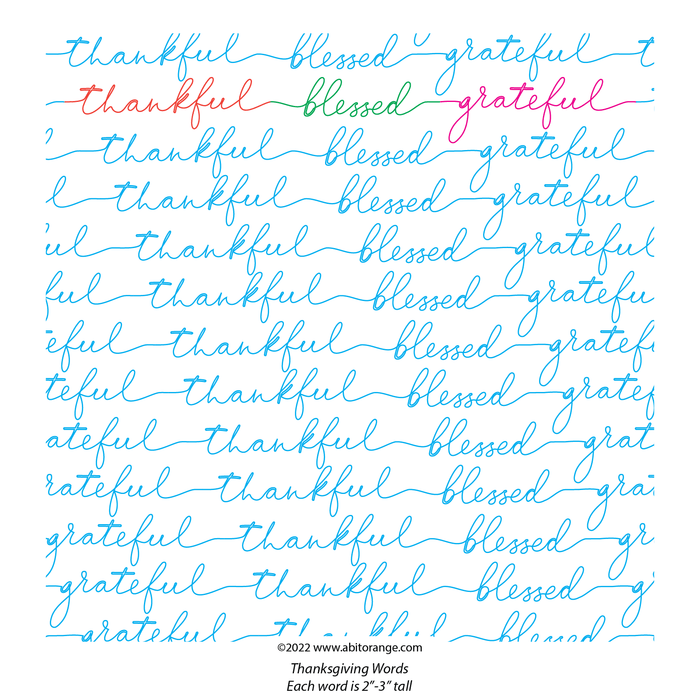 thankful blessed grateful t
thankful blessed grateful
thankful blessed grateful
l thankful blessed grateful
ul thankful blessed grateful
ful thankful blessed gratefu
eful thankful blessed gratef
teful thankful blessed gratef
ateful thankful blessed grat
rateful thankful blessed grat
grateful thankful blessed gr
grateful thankful blessed g
grateful thankful blessed
©2022 www.abitorange.com
Thanksgiving Words
Each word is 2”-3” tall